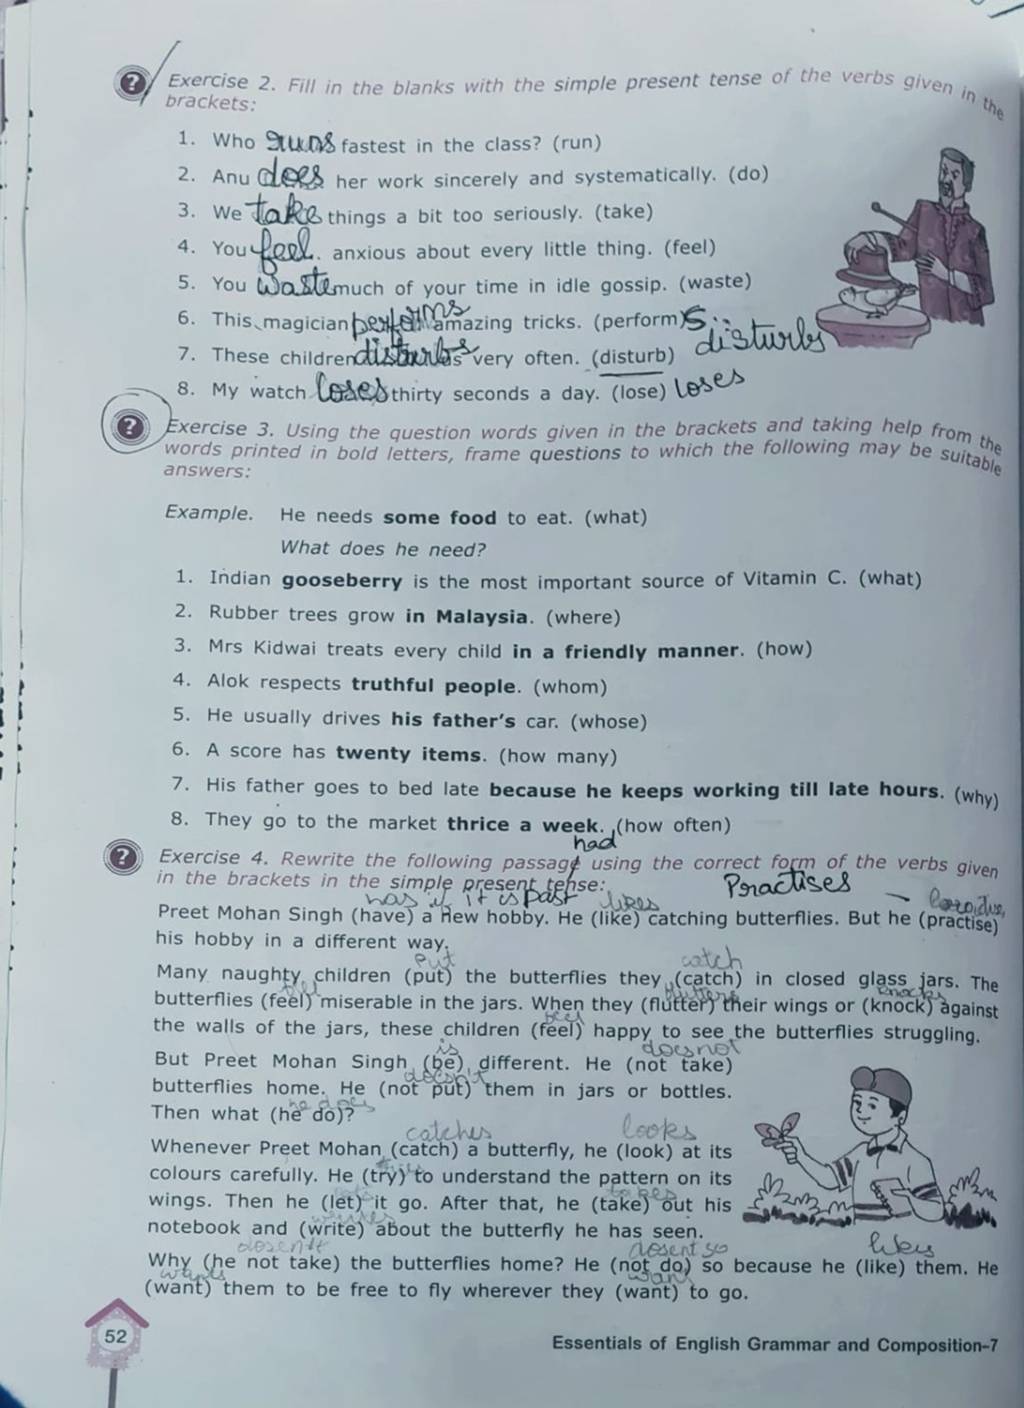 Exercise 2. Fill in the blanks with the simple present tense of the verbs given in the
brackets:
1. Who runs fastest in the class? (run)
2. Anu does her work sincerely and systematically. (do)
3. We take things a bit too seriously. (take)
4. You feel. anxious about every little thing. (feel)
5. You waste much of your time in idle gossip. (waste)
6. This magician performs amazing tricks. (perform) S
7. These children disturbs us very often. (disturb) disturbs
8. My watch loses thirty seconds a day. (lose) loses
Exercise 3. Using the question words given in the brackets and taking help from the
words printed in bold letters, frame questions to which the following may be suitable
answers:
Example. He needs some food to eat. (what)
What does he need?
1. Indian gooseberry is the most important source of Vitamin C. (what)
2. Rubber trees grow in Malaysia. (where)
3. Mrs Kidwai treats every child in a friendly manner. (how)
4. Alok respects truthful people. (whom)
5. He usually drives his father's car. (whose)
6. A score has twenty items. (how many)
7. His father goes to bed late because he keeps working till late hours. (why)
8. They go to the market thrice a week. (how often)
had
Exercise 4. Rewrite the following passage using the correct form of the verbs given
in the brackets in the simple present tense: Practises
has if it is past likes
Preet Mohan Singh (have) a new hobby. He (like) catching butterflies. But he (practise)
his hobby in a different way.
put catch
Many naughty children (put) the butterflies they (catch) in closed glass jars. The
knocks
butterflies (feel) miserable in the jars. When they (flutter) their wings or (knock) against
feel
the walls of the jars, these children (feel) happy to see the butterflies struggling.
is does not
But Preet Mohan Singh (be) different. He (not take)
doesn't
butterflies home. He (not put) them in jars or bottles.
he does
Then what (he do)?
catches looks
Whenever Preet Mohan (catch) a butterfly, he (look) at its
tries
colours carefully. He (try) to understand the pattern on its
takes
wings. Then he (let) it go. After that, he (take) out his
writes
notebook and (write) about the butterfly he has seen.
dosent so likes
Why (he not take) the butterflies home? He (not do) so because he (like) them. He
wants want
(want) them to be free to fly wherever they (want) to go.
52
Essentials of English Grammar and Composition–7